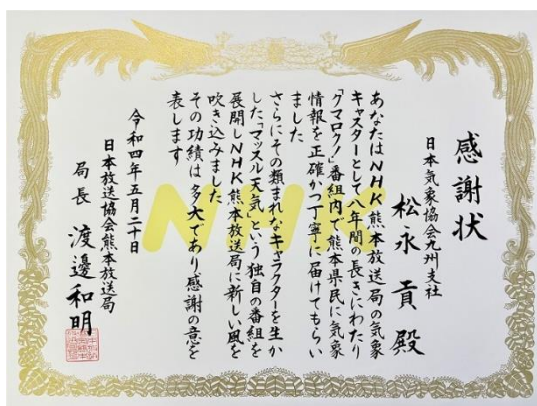 感謝状
日本気象協会九州支社
松永貢殿
あなたはNHK熊本放送局の気象
キャスターとして八年間の長きにわたり
「クマロクノ」番組内で熊本県民に気象
情報を正確かつ丁寧に届けてもらい
ました
さらにその類まれなキャラクターを生か
した「マッスル天気」という独自の番組を
展開しNHK熊本放送局に新しい風を
吹き込みました
その功績は多大であり感謝の意を
表します
令和四年五月二十日
日本放送協会熊本放送局
局長 渡邊和明
NHK